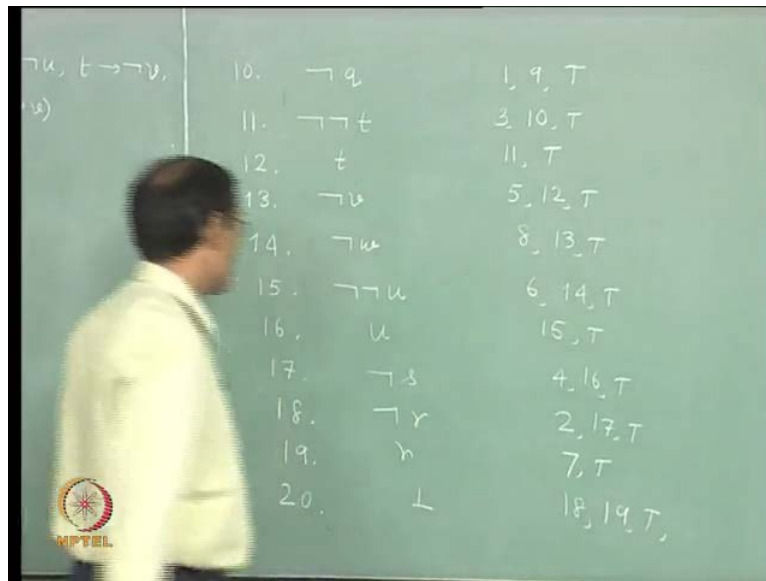 ¬u, t → ¬v,
v)
10. ¬q 1, 9, T
11. ¬¬t 3, 10, T
12. t 11, T
13. ¬v 5, 12, T
14. ¬w 8, 13, T
15. ¬¬u 6, 14, T
16. u 15, T
17. ¬s 4, 16, T
18. ¬r 2, 17, T
19. r 7, T
20. ⊥ 18, 19, T,
NPTEL